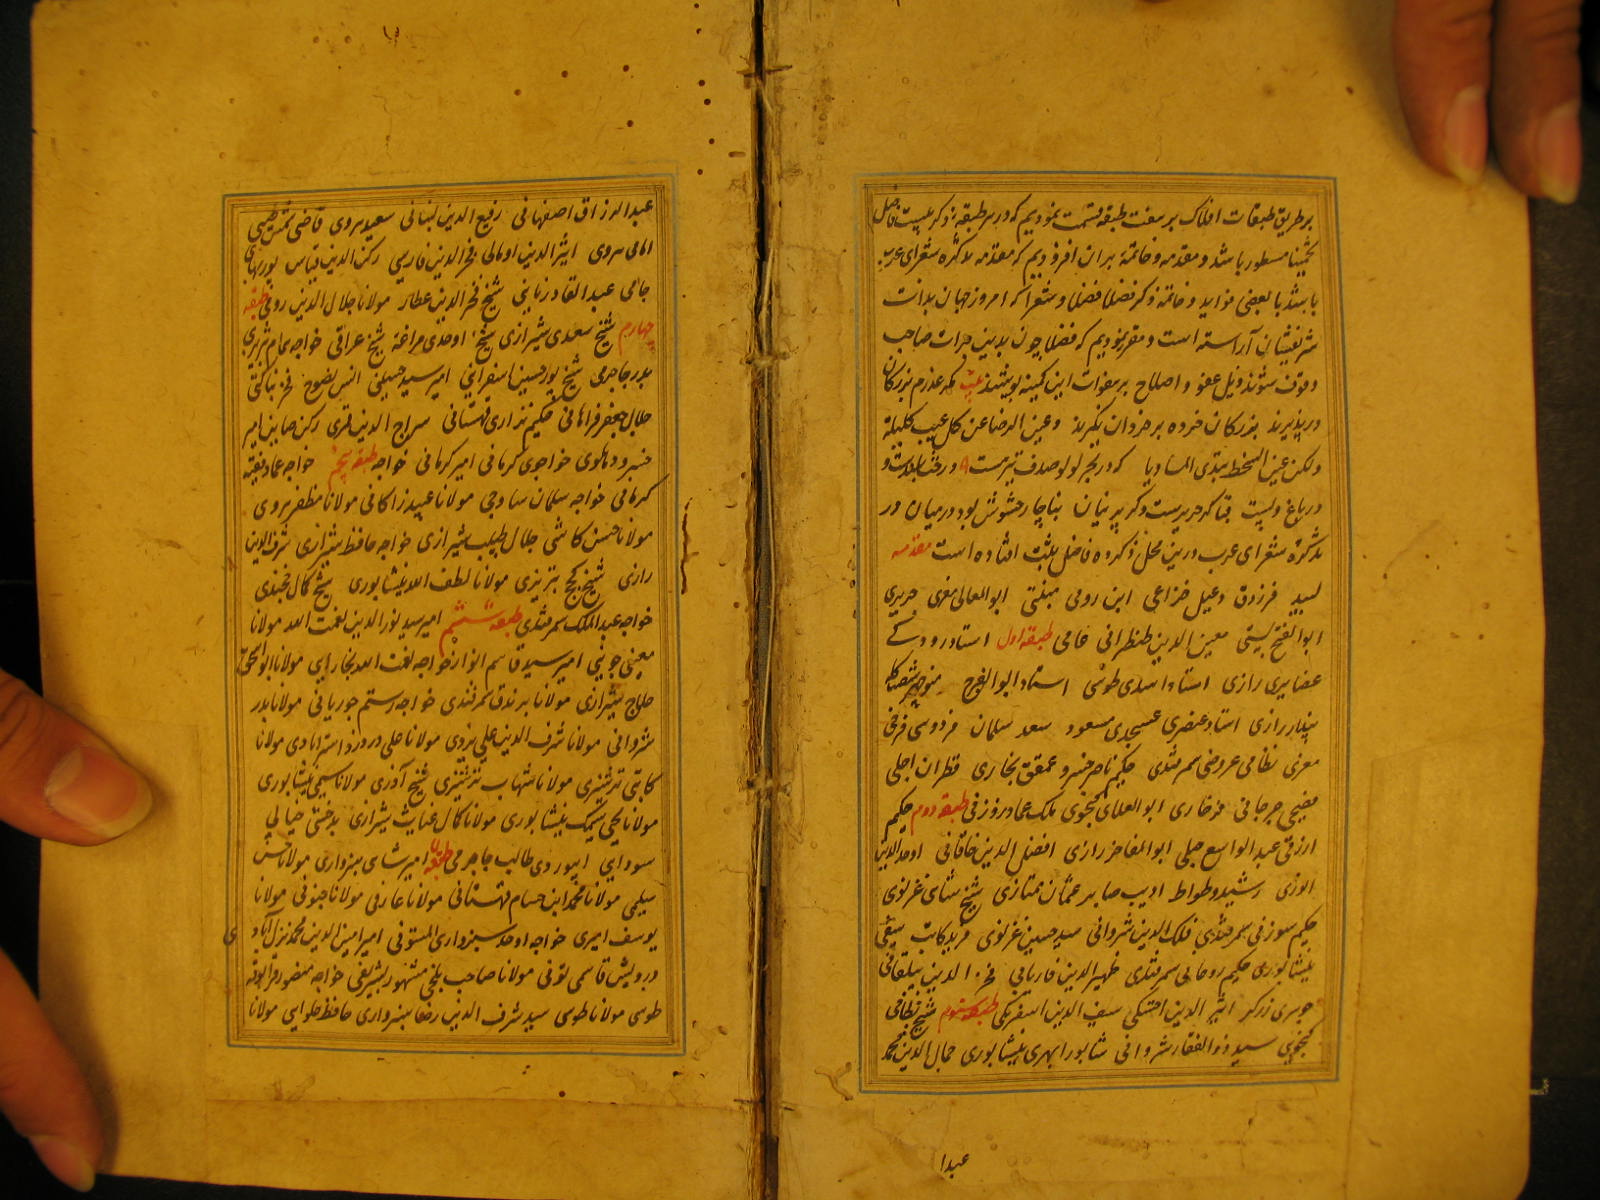 بر طریق طبقات افلاک بر هفت طبقه قسمت نمودیم که در هر طبقه ذکر بیست فاضل
تخمینا مسطور باشد و مقدمه و خاتمه بران افزودیم که مقدمه تذکره شعرای عرب
باشد یا بعضی فواید و خاتمه ذکر فضلا و شعرا که امروز جهان بذات
شریفشان آراسته است و مقرر نمودیم که فضلا چون بدین جرات صاحب
وقوف شوند ذیل عفو و اصلاح بر هفوات این کمینه پوشند بیت که عذرم بزرکان
در پذیرند بزرکان خرده بر خردان نکیرند وعین الرضا عن کل عیب کلیلة
ولکن عین السخط تبدی المساویا که در بحر لولو صدف نیز هست و درخت بلندست و
در باغ و پست قبا کر حریرست و کر پرنیان بناچار حشوش بود در میان در
تذکره شعرای عرب درین محل ذکر ده فاضل ثبت افتاده است مقدمه
لبید فرزدق دعبل خزاعی ابن رومی متنبی ابوالعلا معری حریری
ابوالفتح بستی معین الدین طنطرانی طبقه اول استاد رودکی
عضایری رازی استاد اسدی طوسی استاد ابوالفرج منوچهر شصت کله
پندار رازی استاد عنصری عسجدی مسعود سعد سلمان فردوسی فرخی
معزی نظامی عروضی سمرقندی حکیم ناصر خسرو عمعق بخاری قطران اجلی
فصیحی جرجانی فرخاری ابوالعلای کنجوی ملک عماد زوزنی طبقه دوم حکیم
ازرقی عبدالواسع جبلی ابوالمفاخر رازی افضل الدین خاقانی اوحد الدین
انوری رشید وطواط ادیب صابر عثمان مختاری شیخ سنایی غزنوی
حکیم سوزنی سمرقندی فلک الدین شروانی سید حسن غزنوی فرید کاتب سیفی
نیشابوری حکیم روحانی سمرقندی ظهیر الدین فاریابی فخر الدین بیلقانی
جوهری زرکر اثیر الدین اخسیکتی سیف الدین اسفرنکی طبقه سوم شیخ نظامی
کنجوی سید ذوالفقار شروانی شاپور ابهری نیشابوری جمال الدین محمد
عبدا
عبدالرزاق اصفهانی رفیع الدین لبنانی سعید هروی قاضی شمس طبسی
امامی هروی اثیر الدین اومانی فخر الدین فارسی رکن الدین قبایی پوربهای
جامی عبدالقادر نایینی شیخ فرید الدین عطار مولانا جلال الدین رومی طبقه
چهارم شیخ سعدی شیرازی شیخ اوحدی مراغه شیخ عراقی خواجه همام تبریزی
بدر جاجرمی شیخ پور حسن اسفراینی امیر سید حسینی ابن نصوح فخر بناکتی
جلال جعفر فراهانی حکیم نزاری قهستانی سراج الدین قمری رکن صاین امیر
خسرو دهلوی خواجوی کرمانی امیر کرمانی خواجه طبقه پنجم خواجه عماد فقیه
کرمانی خواجه سلمان ساوجی مولانا عبید زاکانی مولانا مظفر هروی
مولانا حسن کاشی جلال طبیب شیرازی خواجه حافظ شیرازی شرف الدین
رازی شیخ کججی تبریزی مولانا لطف الله نیشابوری شیخ کمال خجندی
خواجه عبدالملک سمرقندی طبقه ششم امیر سید نور الدین نعمت الله مولانا
معینی جوینی امیر سید قاسم انوار خواجه عصمت الله بخارایی مولانا ابواسحق
حلاج شیرازی مولانا برندق سمرقندی خواجه رستم جوریانی مولانا بدر
شروانی مولانا شرف الدین علی یزدی مولانا علی درودزد استرابادی مولانا
کاتبی ترشیزی مولانا شهاب ترشیزی شیخ آذری مولانا سیمی نیشابوری
مولانا یحیی سیبک نیشابوری مولانا کمال غیاث شیرازی بدخشی خیالی
سودایی ابیوردی طالب جاجرمی طبقه امیر شاهی سبزواری مولانا حسن
سلیمی مولانا محمد ابن حسام قهستانی مولانا عارفی مولانا جنونی مولانا
یوسف امیری خواجه اوحد سبزواری المستوفی امیر امین الدین محمد نزل آبادی
درویش قاسمی تونی مولانا صاحب بلخی مشهور بشریفی خواجه منصور قرابوقه
طوسی مولانا طوسی سید شرف الدین رضا سبزواری حافظ حلوایی مولانا